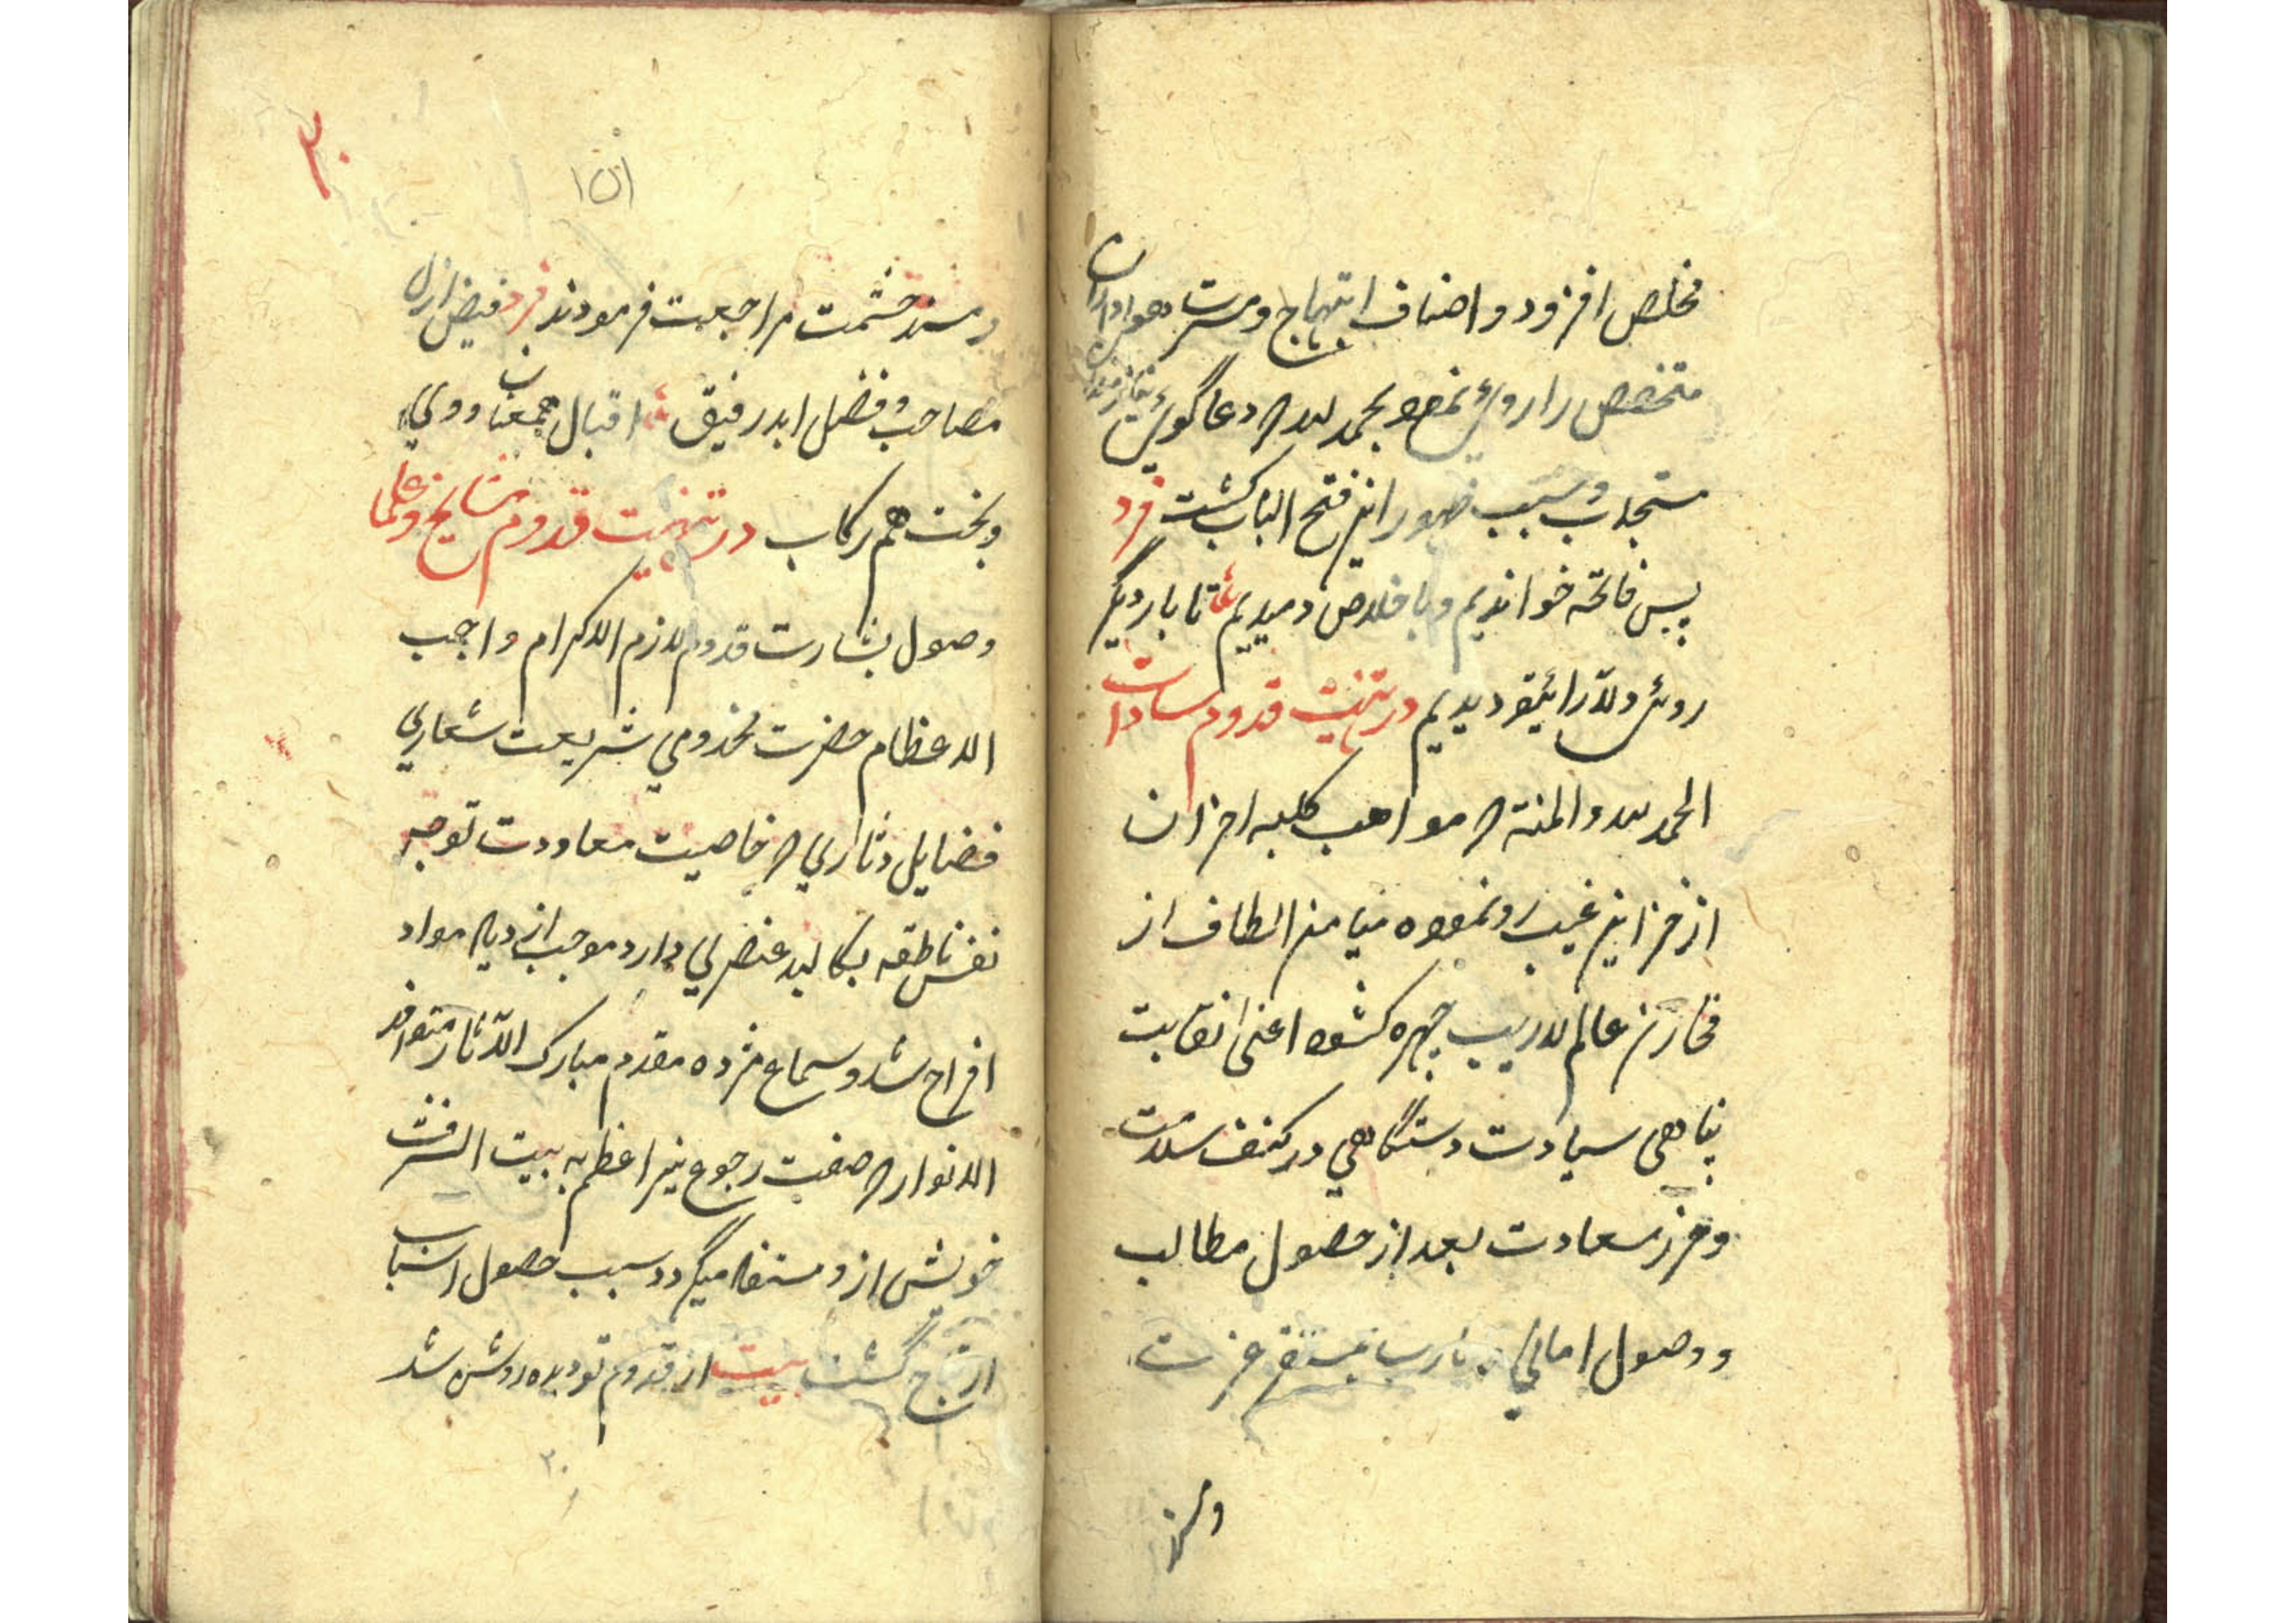 مخلص افزود و اضعاف ابتهاج و مسرت هواداران
متخصص را روی نمود بحمد لله که دعا گوی
مستجاب و سبب ظهور این فتح الباب گشت فرد
پس فاتحه خواندیم و باخلاص دمیدیم تا بار دیگر
روی دلارای تو دیدیم در تهنیت قدوم سادات
الحمد لله والمنة که مواهب کلبه احزان
از خزاین غیب رو نموده میامن الطاف از
مخازن عالم لاریب چهره گشوده اعنی نقابت
پناهی سیادت دستگاهی در کنف سلامت
و حرز سعادت بعد از حصول مطالب
و وصول امانی و مارب بمستقر عزت
و مسند
۳۰
۱۵۱
و مسند حشمت مراجعت فرمودند فرد فیض ازل
مصاحب و فضل ابد رفیق اقبال همعنان و
و بخت هم رکاب در تهنیت قدوم مشایخ و علما
وصول بشارت قدوم لازم الاکرام واجب
الاعظام حضرت مخدومی شریعت شعاری
فضایل دثاری که خاصیت معاودت توجه
نفس ناطقه بکالبد عنصری دارد موجب ازدیاد مواد
افراح شد و سماع مژده مقدم مبارک الآثار متوافر
الانوار که صفت رجوع نیر اعظم به بیت الشرف
خویش ازو مستفاد میگردد سبب حصول اسباب
ارتیاح گشت بیت از قدوم تو دیده روشن شد
۳۰